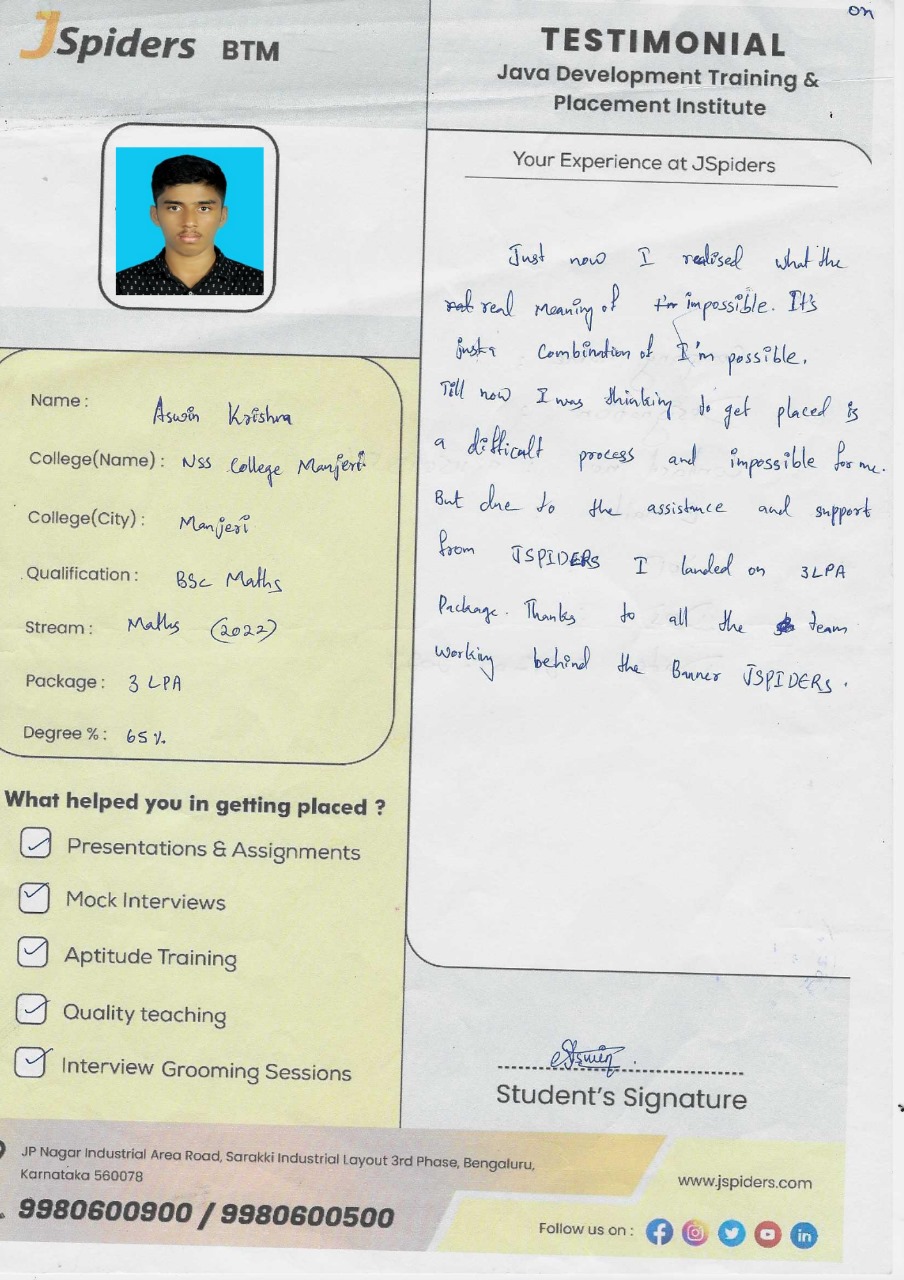 on
JSpiders BTM
TESTIMONIAL
Java Development Training &
Placement Institute
Your Experience at JSpiders
Just now I realised what the
real meaning of impossible. It's
just a combination of I'm possible.
Till now I was thinking to get placed is
a difficalt process and impossible for me.
But due to the assistance and support
from JSPIDERS I landed on 3LPA
Package. Thanks to all the team
working behind the Banner JSPIDERS.
Name : Aswin Krishna
College(Name) : NSS College Manjeri
College(City) : Manjeri
Qualification : BSc Maths
Stream : Maths (2022)
Package : 3 LPA
Degree % : 65%
What helped you in getting placed ?
Presentations & Assignments
Mock Interviews
Aptitude Training
Quality teaching
Interview Grooming Sessions
Aswin
Student's Signature
JP Nagar Industrial Area Road, Sarakki Industrial Layout 3rd Phase, Bengaluru,
Karnataka 560078
9980600900 / 9980600500
www.jspiders.com
Follow us on :